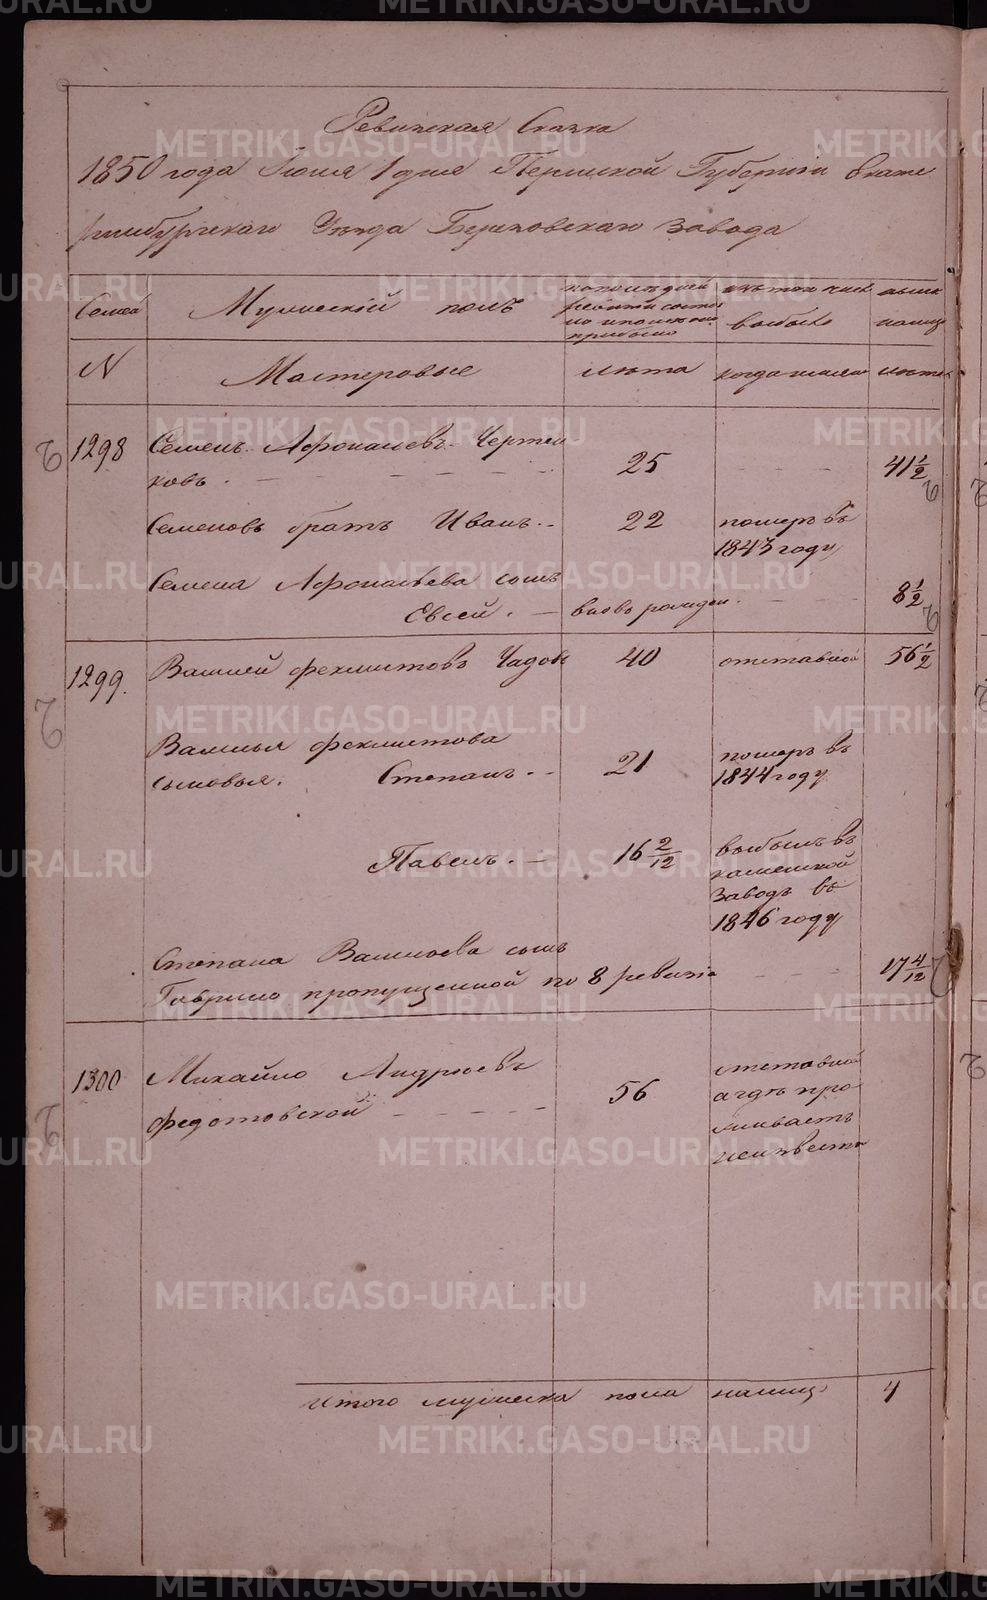 Ревизская Сказка
1850 года Июня 1 дня Пермской Губернiи Екате
ринбургскаго Уезда Березовскаго Завода
Семьи
Мужескiй полъ
по последней
ревизiи состо
яло и после того
прибыло
изъ того числа
выбыло
ныне
налицо
N
Мастеровые
лета
когда именно
лета
1298
Семенъ Афонасьевъ Чертен
ковъ.
25
41 1/2
Семеновъ братъ Иванъ
22
померъ въ
1843 году
Семена Афонасьева сынъ
Евсей.
вновь рожден.
8 1/2
1299.
Василей Феклистовъ Чадовъ
40
отставной
56 1/2
Василья Феклистова
сыновья. Степанъ
21
померъ въ
1844 году
Павелъ.
16 2/12
выбылъ въ
каменской
заводъ въ
1846 году
Степана Васильева сынъ
Гаврило пропущенной по 8 ревизiи
17 4/12
1300
Михайло Андреевъ
Федотовской
56
отставной
а где про
живаетъ
неизвестно
итого мужеска пола налицо
4
METRIKI.GASO-URAL.RU